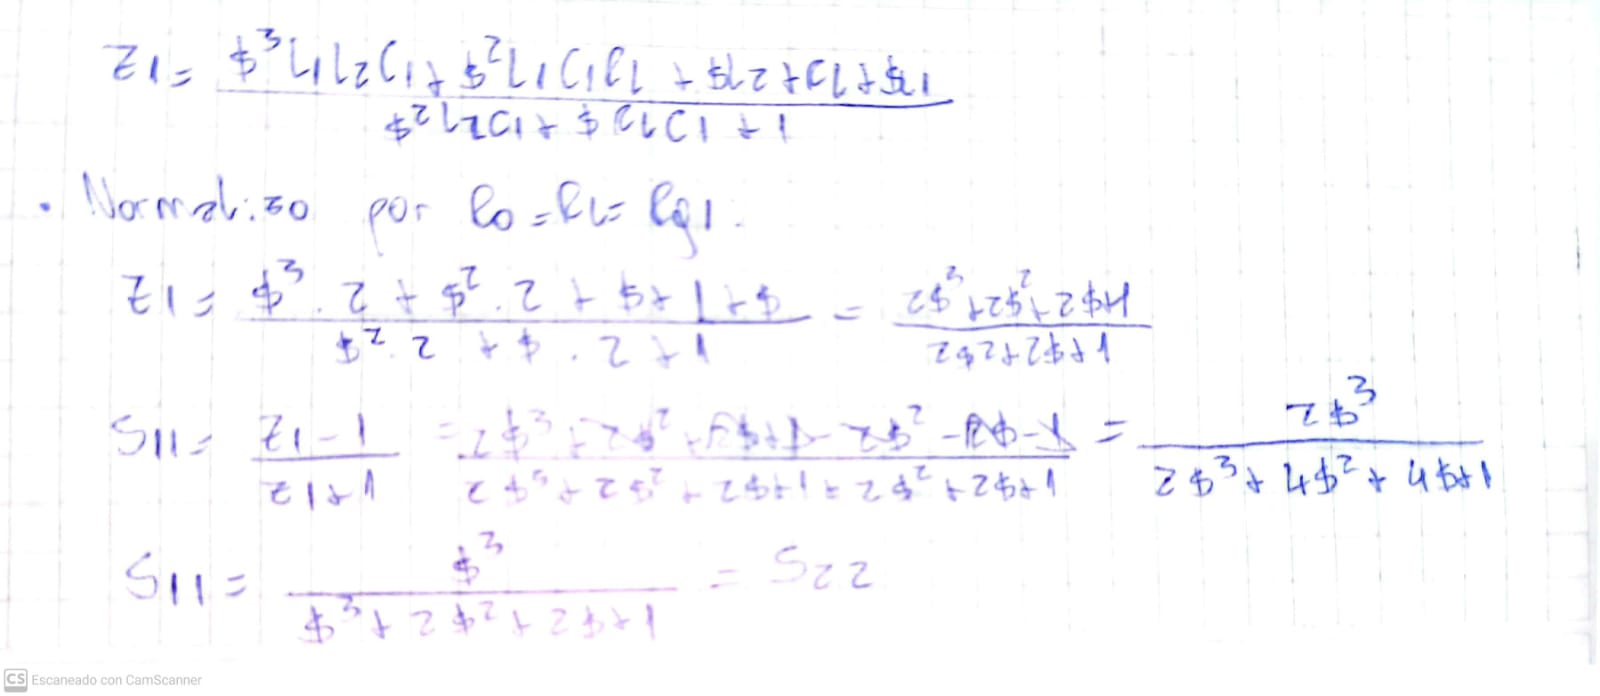 Z1 = $³L1L2C1 + $²L1C1RL + $L2 + RL + $L1
$²L2C1 + $RLC1 + 1
• Normalizo por R0 = RL = Rg1.
Z1 = $³ · 2 + $² · 2 + $ + 1 + $ = 2$³+2$²+2$+1
$² · 2 + $ · 2 + 1 2$²+2$+1
S11 = Z1-1 = 2$³+2$²+2$+1-2$²-2$-1 = 2$³
Z1+1 2$³+2$²+2$+1+2$²+2$+1 2$³+4$²+4$+1
S11 = $³ = S22
$³+2$²+2$+1
CS Escaneado con CamScanner